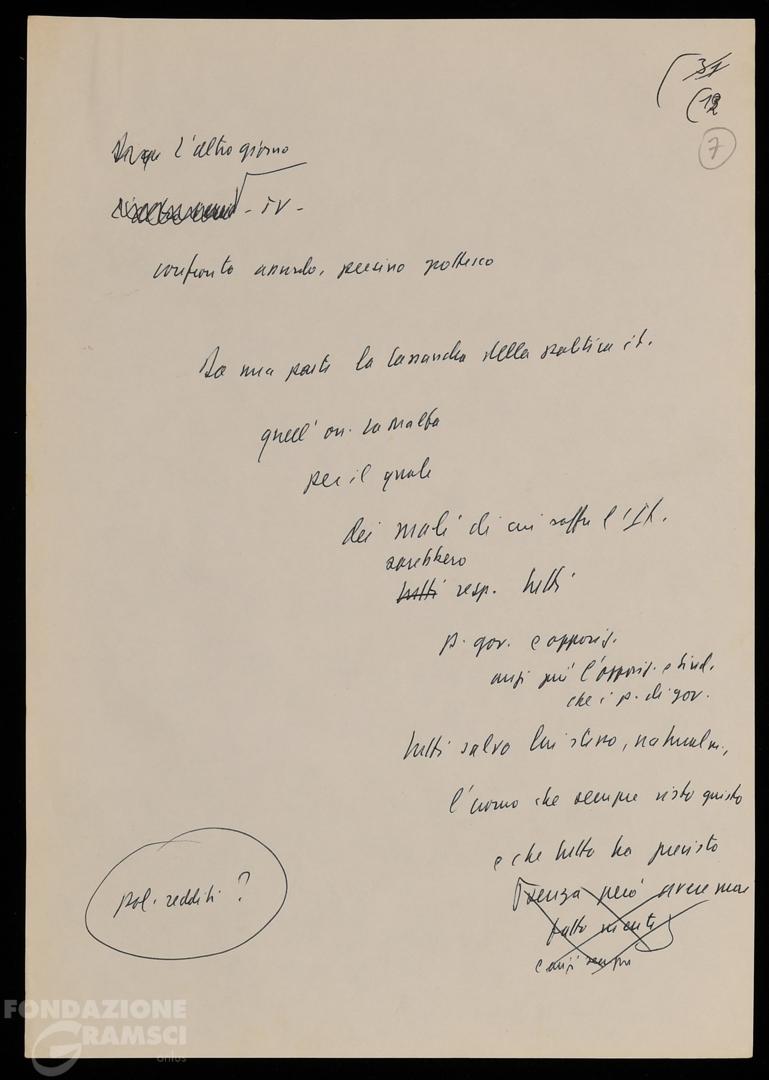 (31
(12
7
Dunque l'altro giorno
- TV -
confronto assurdo, persino grottesco
Da una parte la Cassandra della politica it.
quell'on. La Malfa
per il quale
dei mali di cui soffre l'It.
sarebbero
tutti resp. tutti
p. gov. e opposiz.
anzi più l'opposiz. e sind.
che i p. di gov.
tutti salvo lui stesso, naturalm.,
l'uomo che sempre visto giusto
e che tutto ha previsto
senza però avere mai
fatto niente
e anzi sempre
pol. redditi?
FONDAZIONE
GRAMSCI
onlus